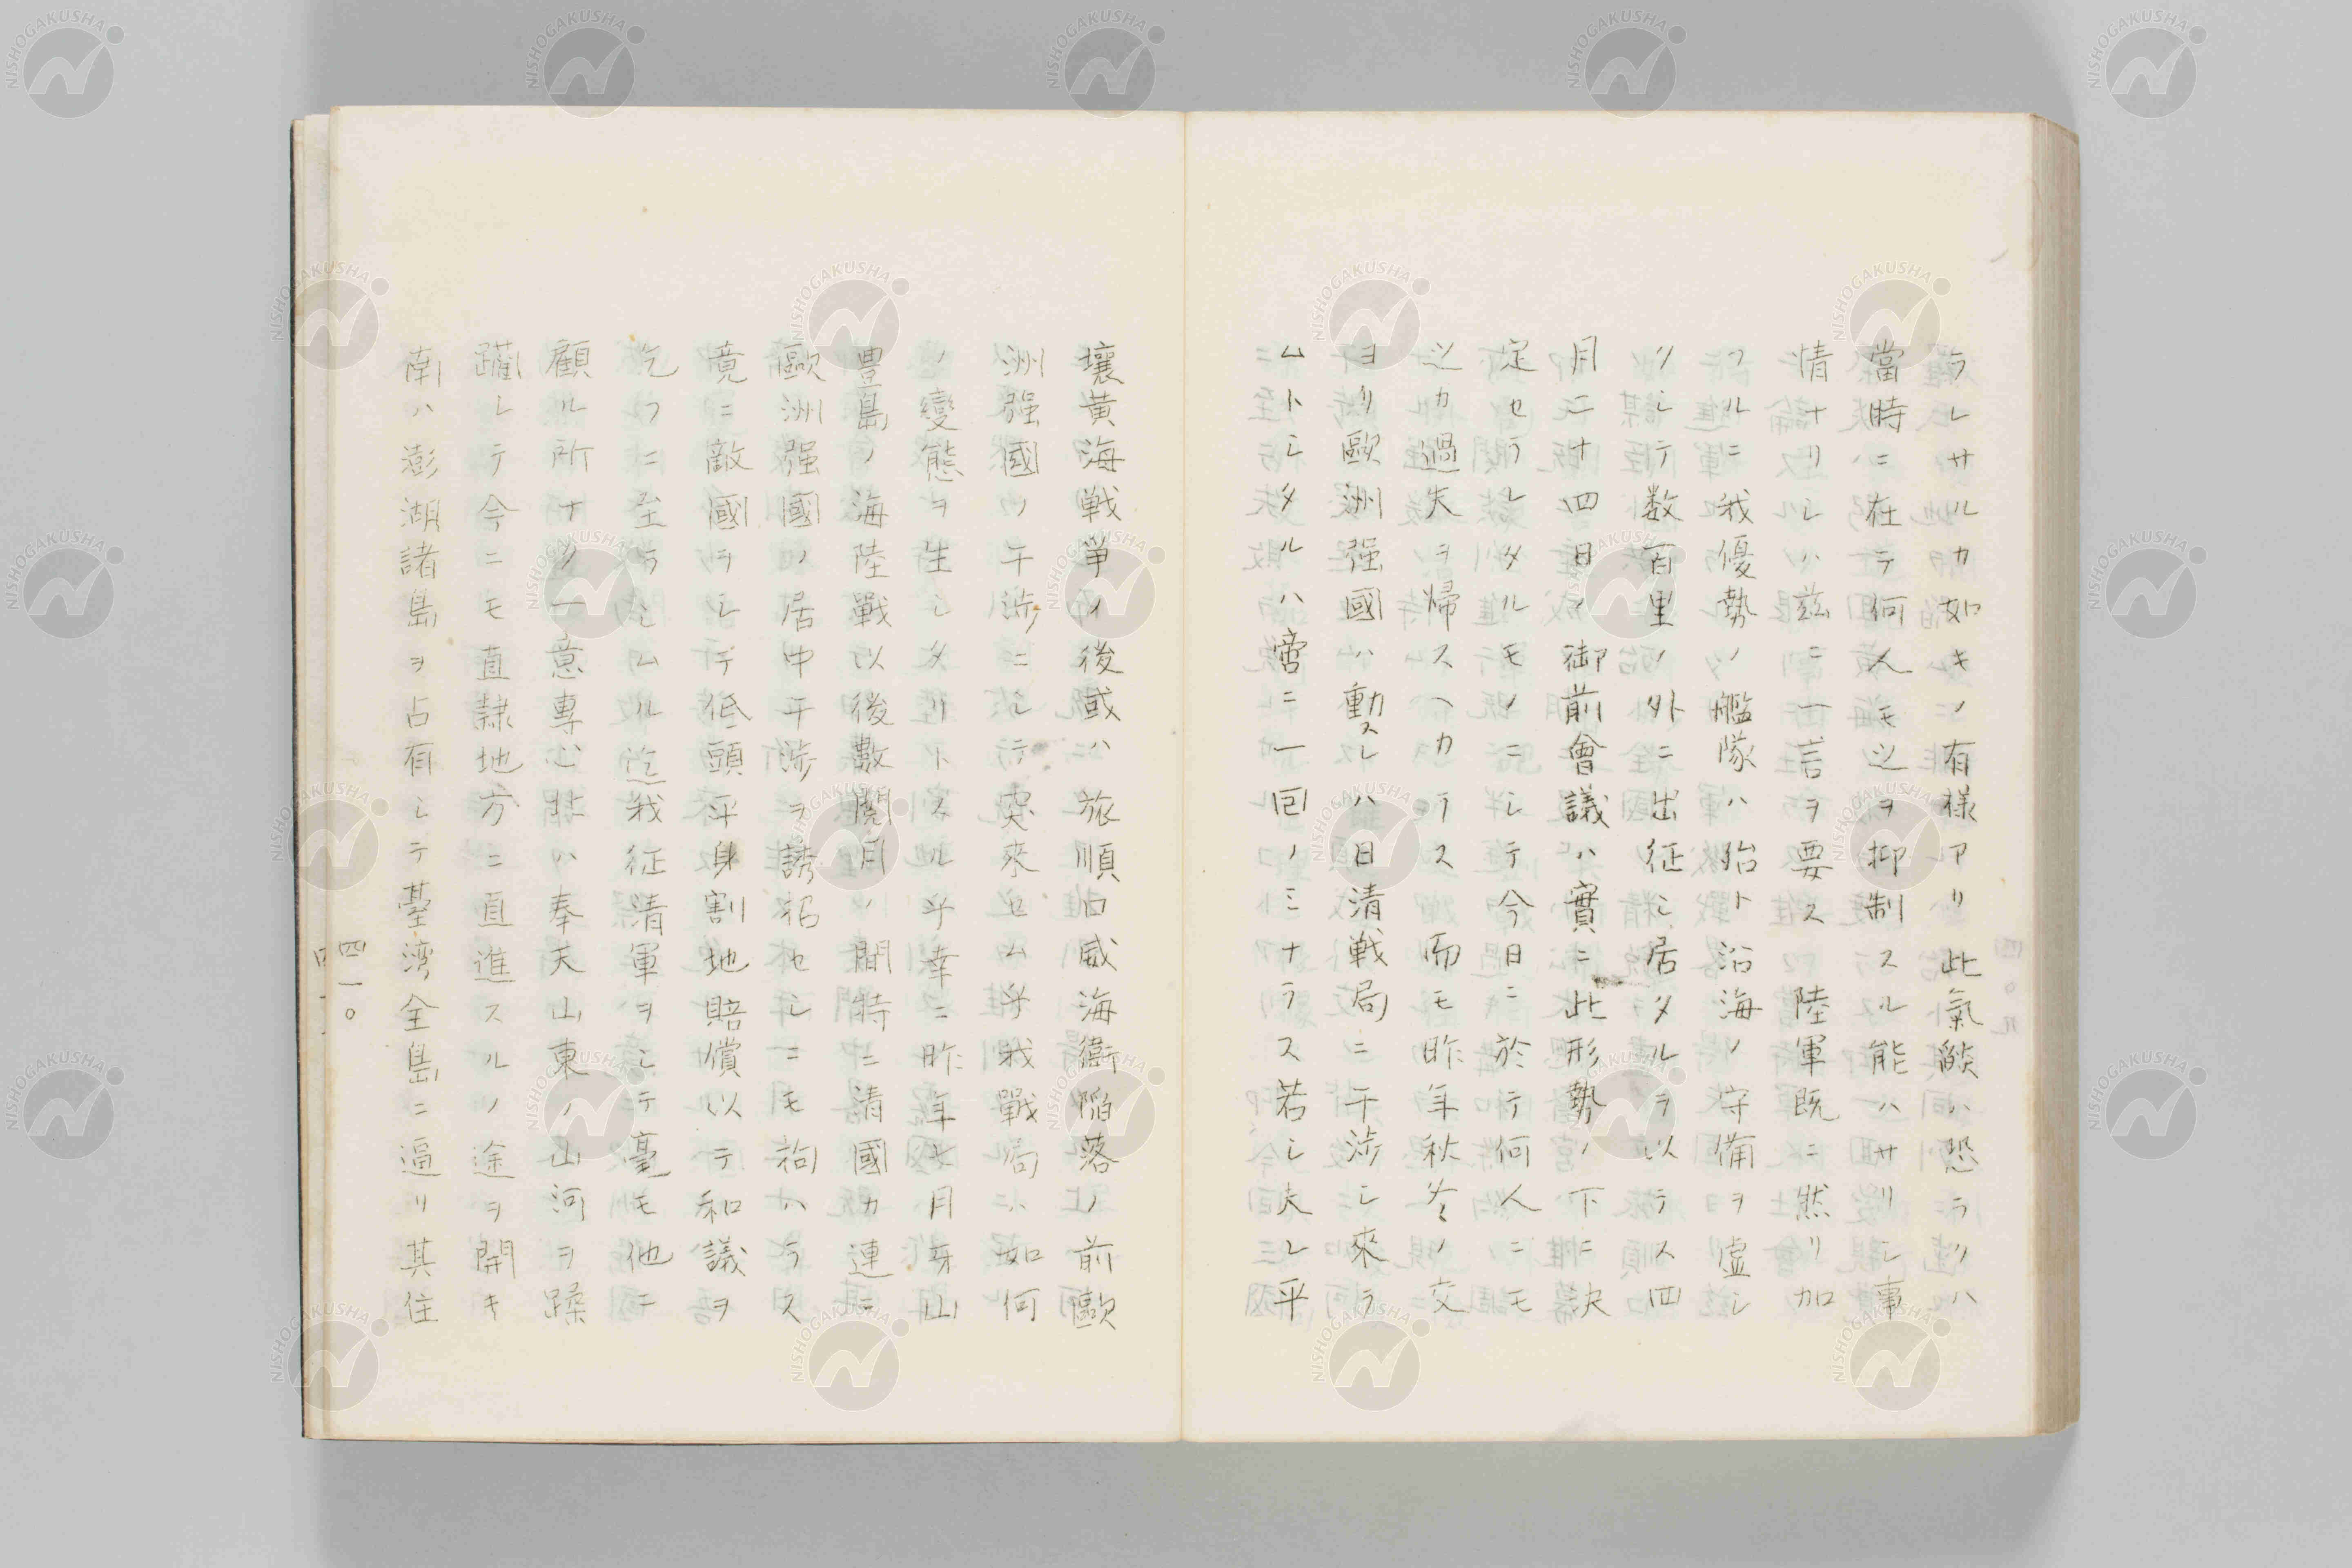 ラレサルカ如キノ有様アリ此氣燄ハ恐ラクハ
當時ニ在テ何人モ之ヲ抑制スル能ハサリシ事
情ナリシハ茲ニ一言ヲ要ス陸軍既ニ然リ加
フルニ我優勢ノ艦隊ハ殆ト沿海ノ守備ヲ虚シ
クシテ数百里ノ外ニ出征シ居タルヲ以テス四
月二十四日ノ御前會議ハ實ニ此形勢ノ下ニ決
定セラレタルモノニシテ今日ニ於テ何人ニモ
之カ過失ヲ帰スヘカラス而モ昨年秋冬ノ交
ヨリ歐洲强國ハ動スレハ日清戦局ニ干渉シ來ラ
ムトシタルハ啻ニ一回ノミナラス若シ夫レ平
壤黄海戦爭ノ後或ハ旅順口威海衞陥落ノ前歐
洲强國ノ干渉ニシテ突來セム乎我戰局ハ如何
ノ變態ヲ生シタリトスル乎幸ニ昨年七月牙山
豊島ノ海陸戰以後數閲月ノ間特ニ清國カ連ニ
歐洲强國ノ居中干渉ヲ誘招セシニモ拘ハラス
竟ニ敵國ヲシテ低頭平身割地賠償以テ和議ヲ
乞フニ至ラシムル迄我征清軍ヲシテ毫モ他ニ
顧ル所ナク一意專心北ハ奉天山東ノ山河ヲ蹂
躙シテ今ニモ直隷地方ニ直進スルノ途ヲ開キ
南ハ澎湖諸島ヲ占有シテ臺湾全島ニ逼リ其住
四一〇
NISHOGAKUSHA